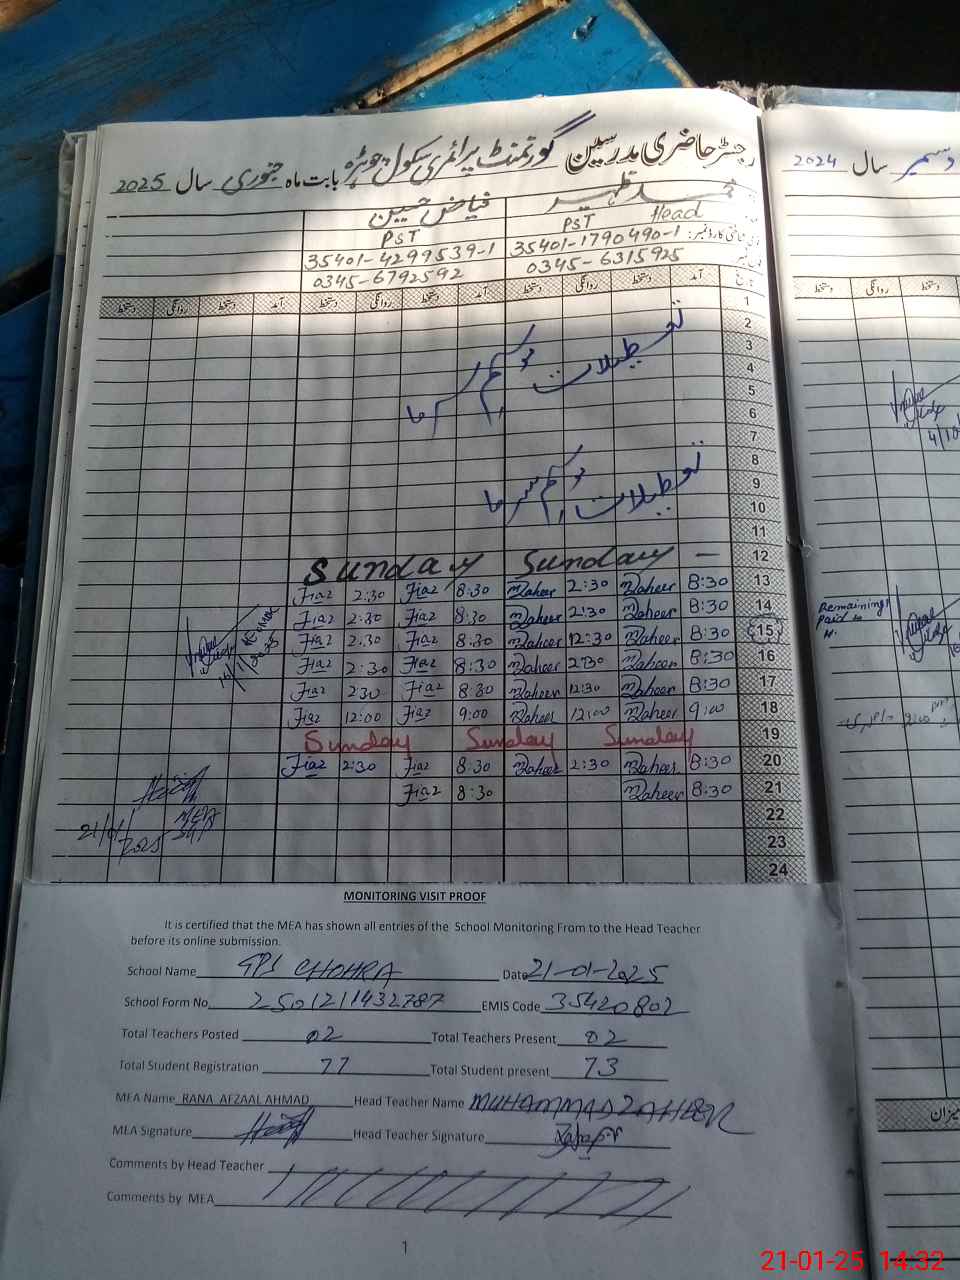 رجسٹر حاضری مدرسین گورنمنٹ پرائمری سکول چوہڑہ بابت ماہ جنوری سال 2025
فیاض حسین
محمد ظہیر
PST
PST Head
35401-4299539-1
35401-1790490-1
0345-6792592
0345-6315925
دستخط روانگی دستخط آمد دستخط روانگی دستخط آمد دستخط روانگی دستخط آمد
1
2
3
4
5
6
7
تعطیلات موسم سرما
8
9
10
تعطیلات موسم سرما
11
Sunday Sunday — 12
Fiaz 2:30 Fiaz 8:30 Zaheer 2:30 Zaheer 8:30 13
Fiaz 2:30 Fiaz 8:30 Zaheer 2:30 Zaheer 8:30 14
Fiaz 2:30 Fiaz 8:30 Zaheer 12:30 Zaheer 8:30 15
Fiaz 2:30 Fiaz 8:30 Zaheer 2:30 Zaheer 8:30 16
Fiaz 2:30 Fiaz 8:30 Zaheer 12:30 Zaheer 8:30 17
Fiaz 12:00 Fiaz 9:00 Zaheer 12:00 Zaheer 9:00 18
Sunday Sunday Sunday 19
Fiaz 2:30 Fiaz 8:30 Zaheer 2:30 Zaheer 8:30 20
Fiaz 8:30 Zaheer 8:30 21
22
23
24
21/01/2025
MEA
MONITORING VISIT PROOF
It is certified that the MEA has shown all entries of the School Monitoring From to the Head Teacher
before its online submission.
School Name GPS CHOHRA Date 21-01-2025
School Form No. 2501211432787 EMIS Code 35420802
Total Teachers Posted 02 Total Teachers Present 02
Total Student Registration 77 Total Student present 73
MEA Name RANA AFZAAL AHMAD Head Teacher Name MUHAMMAD ZAHEER
MEA Signature Head Teacher Signature
Comments by Head Teacher
Comments by MEA
1
دسمبر سال 2024
دستخط روانگی دستخط
Remaining
Paid in
میزان
21-01-25 14:32